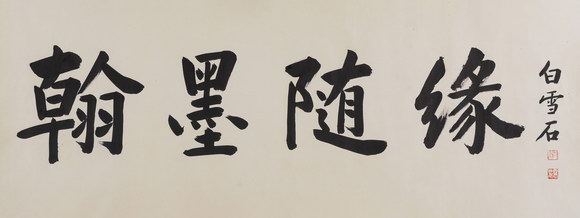 翰墨随缘
白雪石